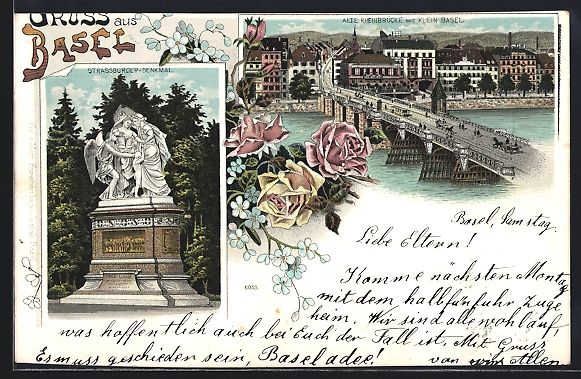 GRUSS aus
BASEL
STRASSBURGER-DENKMAL.
ALTE RHEINBRÜCKE MIT KLEIN BASEL.
6053.
Basel, Samstag.
Liebe Eltern!
Komme nächsten Montag
mit dem halbfünfuhr Zuge
heim. Wir sind alle wohlauf,
was hoffentlich auch bei Euch der Fall ist. Mit Gruss
Es muss geschieden sein, Basel adee! von Allen